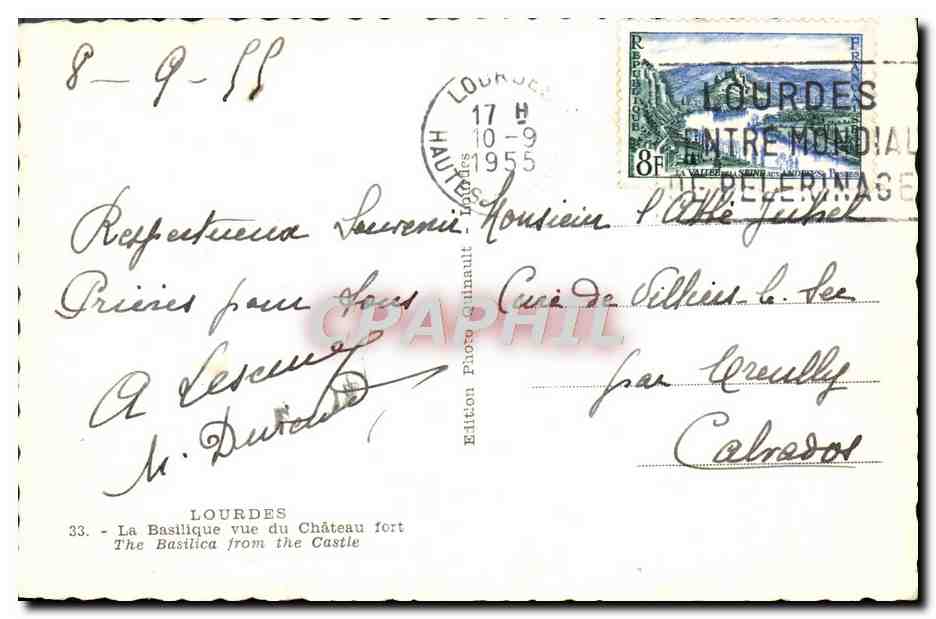 8 - 9 - 55
LOURDES
17 H
10-9
1955
HAUTES
REPUBLIQUE FRANÇAISE
8F
LA VALLEE DE LA SEINE AUX ANDELYS - POSTES
LOURDES
ENTRE MONDIAL
DE PELERINAGE
Respectueux Souvenir
Prières pour Tous
M. Durand
Monsieur l'Abbé
Curé de Villiers-le-Sec
par Creully
Calvados
Edition Photo Quinault - Lourdes
CPAPHIL
LOURDES
33. - La Basilique vue du Château fort
The Basilica from the Castle